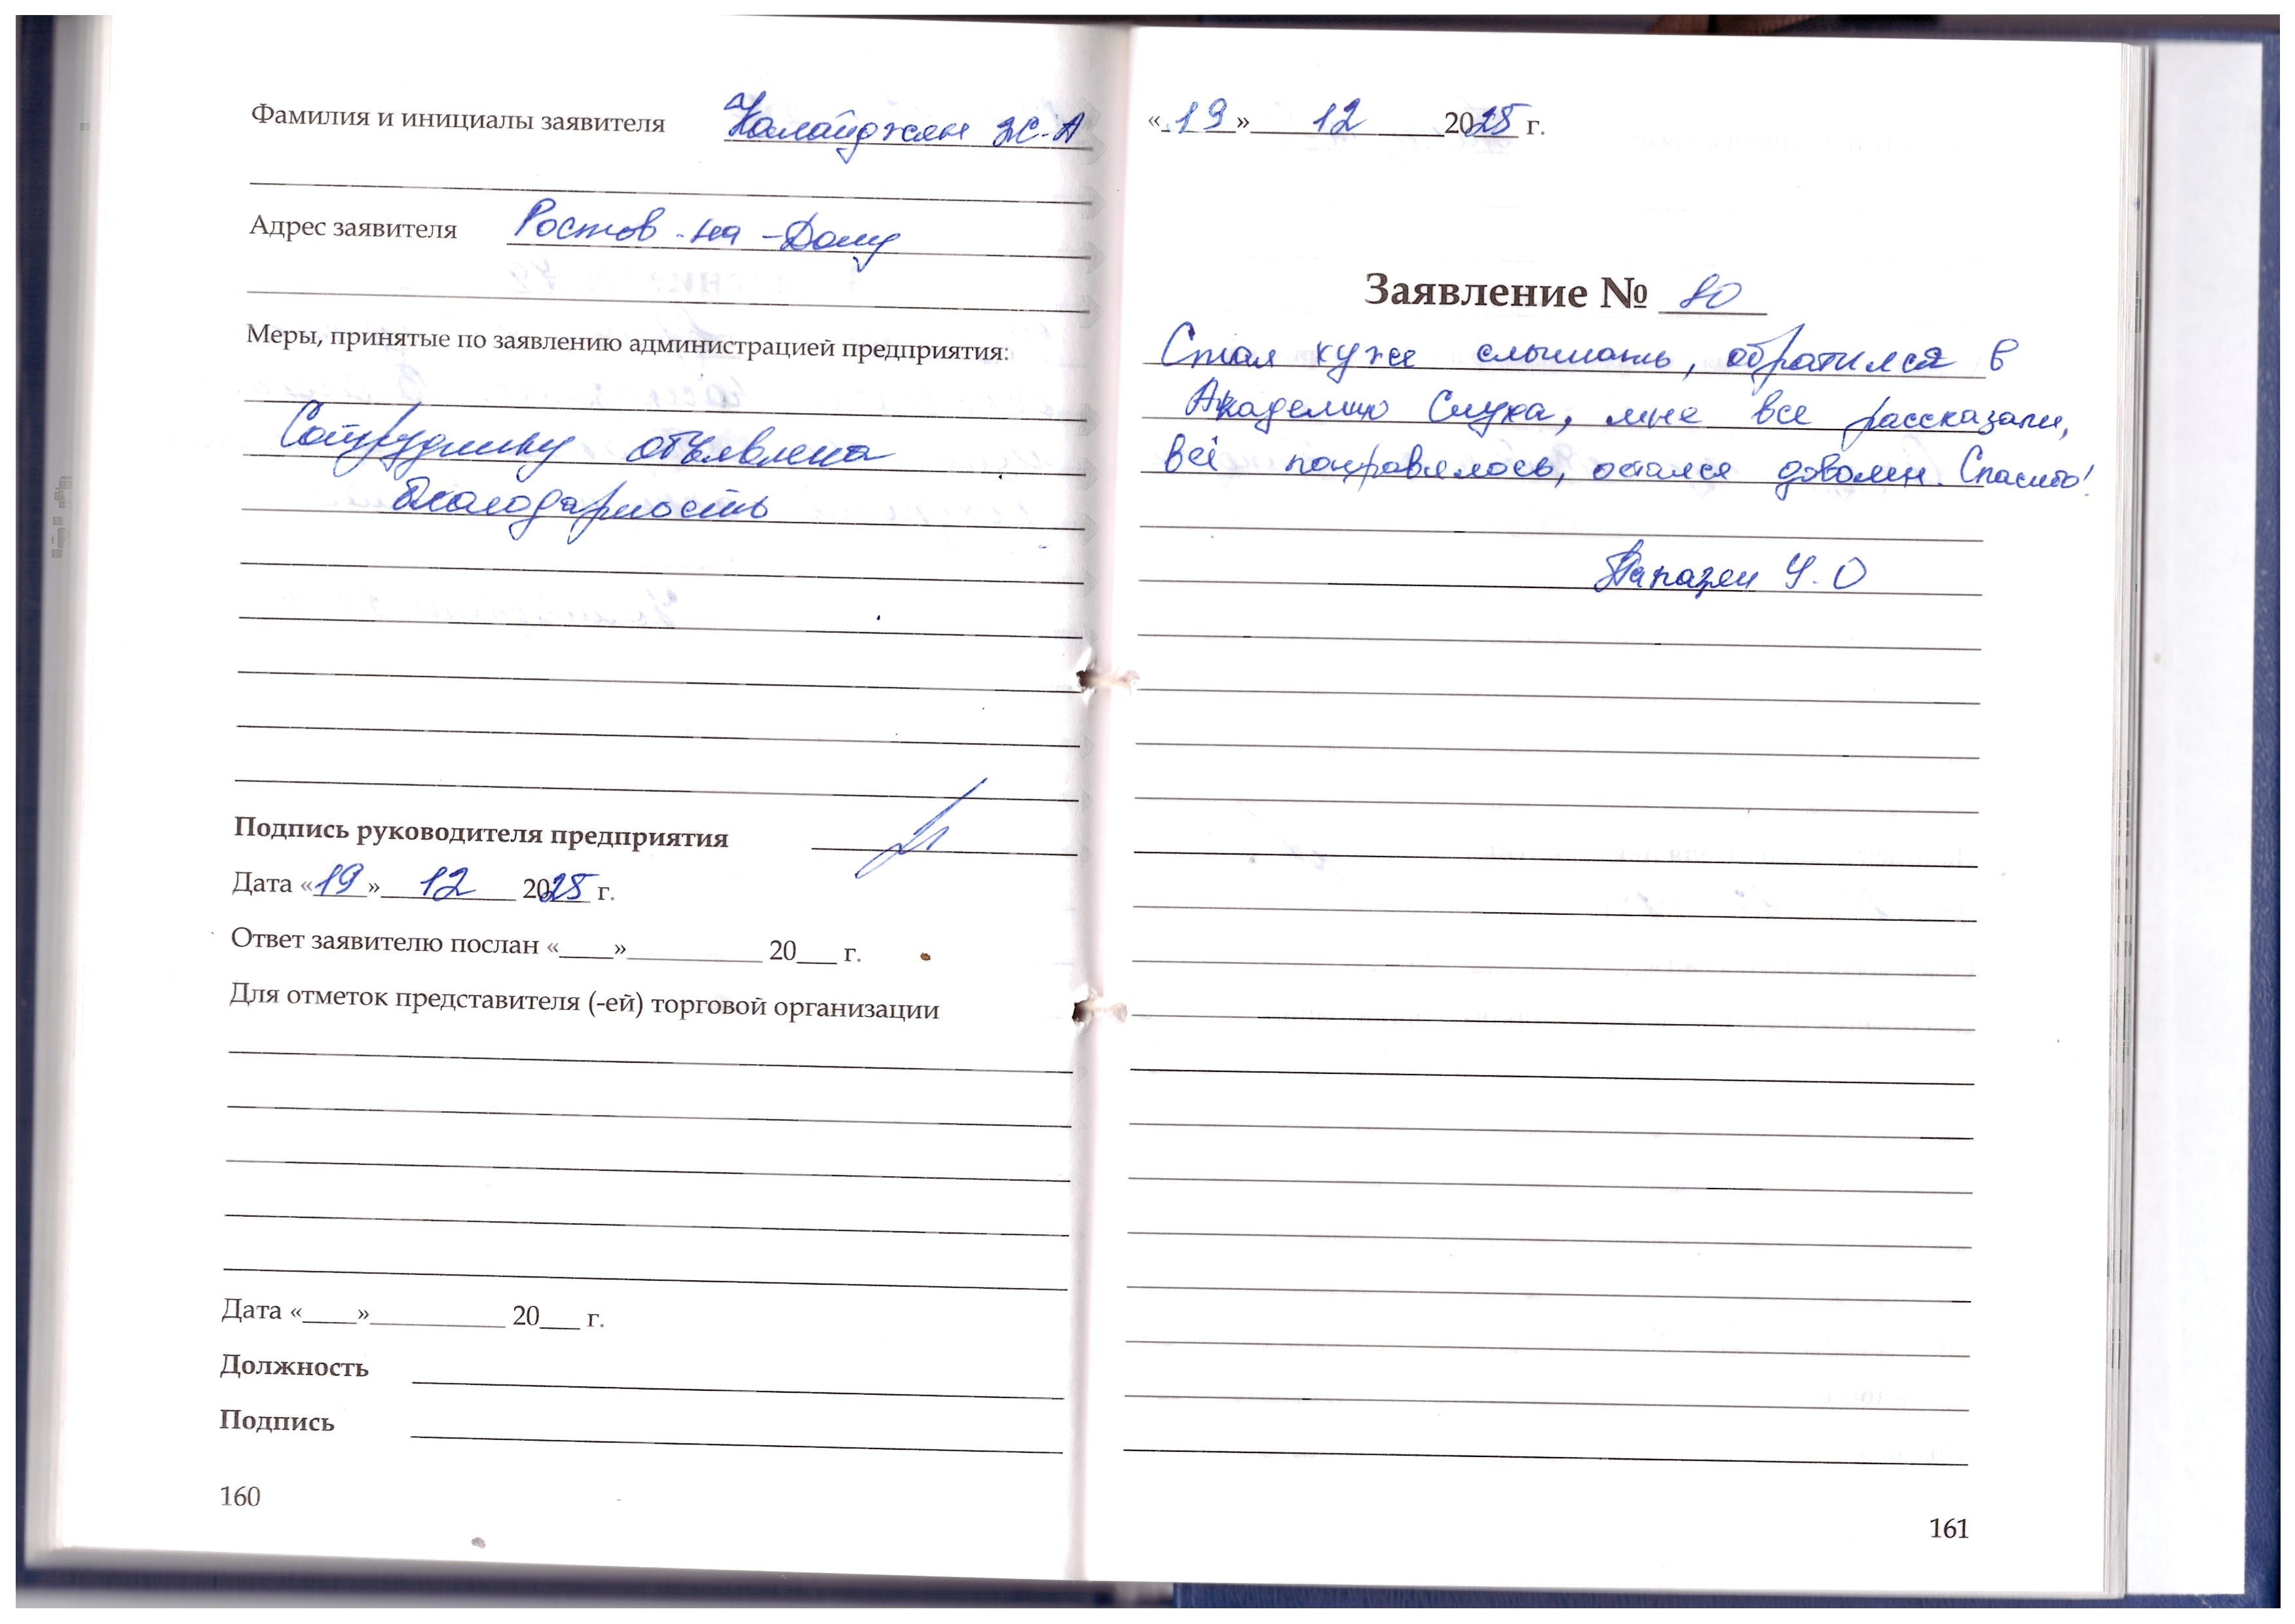 Фамилия и инициалы заявителя Калайджян Ж.А
Адрес заявителя Ростов-на-Дону
Меры, принятые по заявлению администрацией предприятия:
Сотруднику объявлена
благодарность
Подпись руководителя предприятия
Дата «19» 12 2025 г.
Ответ заявителю послан «____»__________ 20___ г.
Для отметок представителя (-ей) торговой организации
Дата «____»__________ 20___ г.
Должность
Подпись
160
«19» 12 2025 г.
Заявление № 80
Стал хуже слышать, обратился в
Академию Слуха, мне все рассказали,
всё понравилось, остался доволен. Спасибо!
Папазян У.О
161